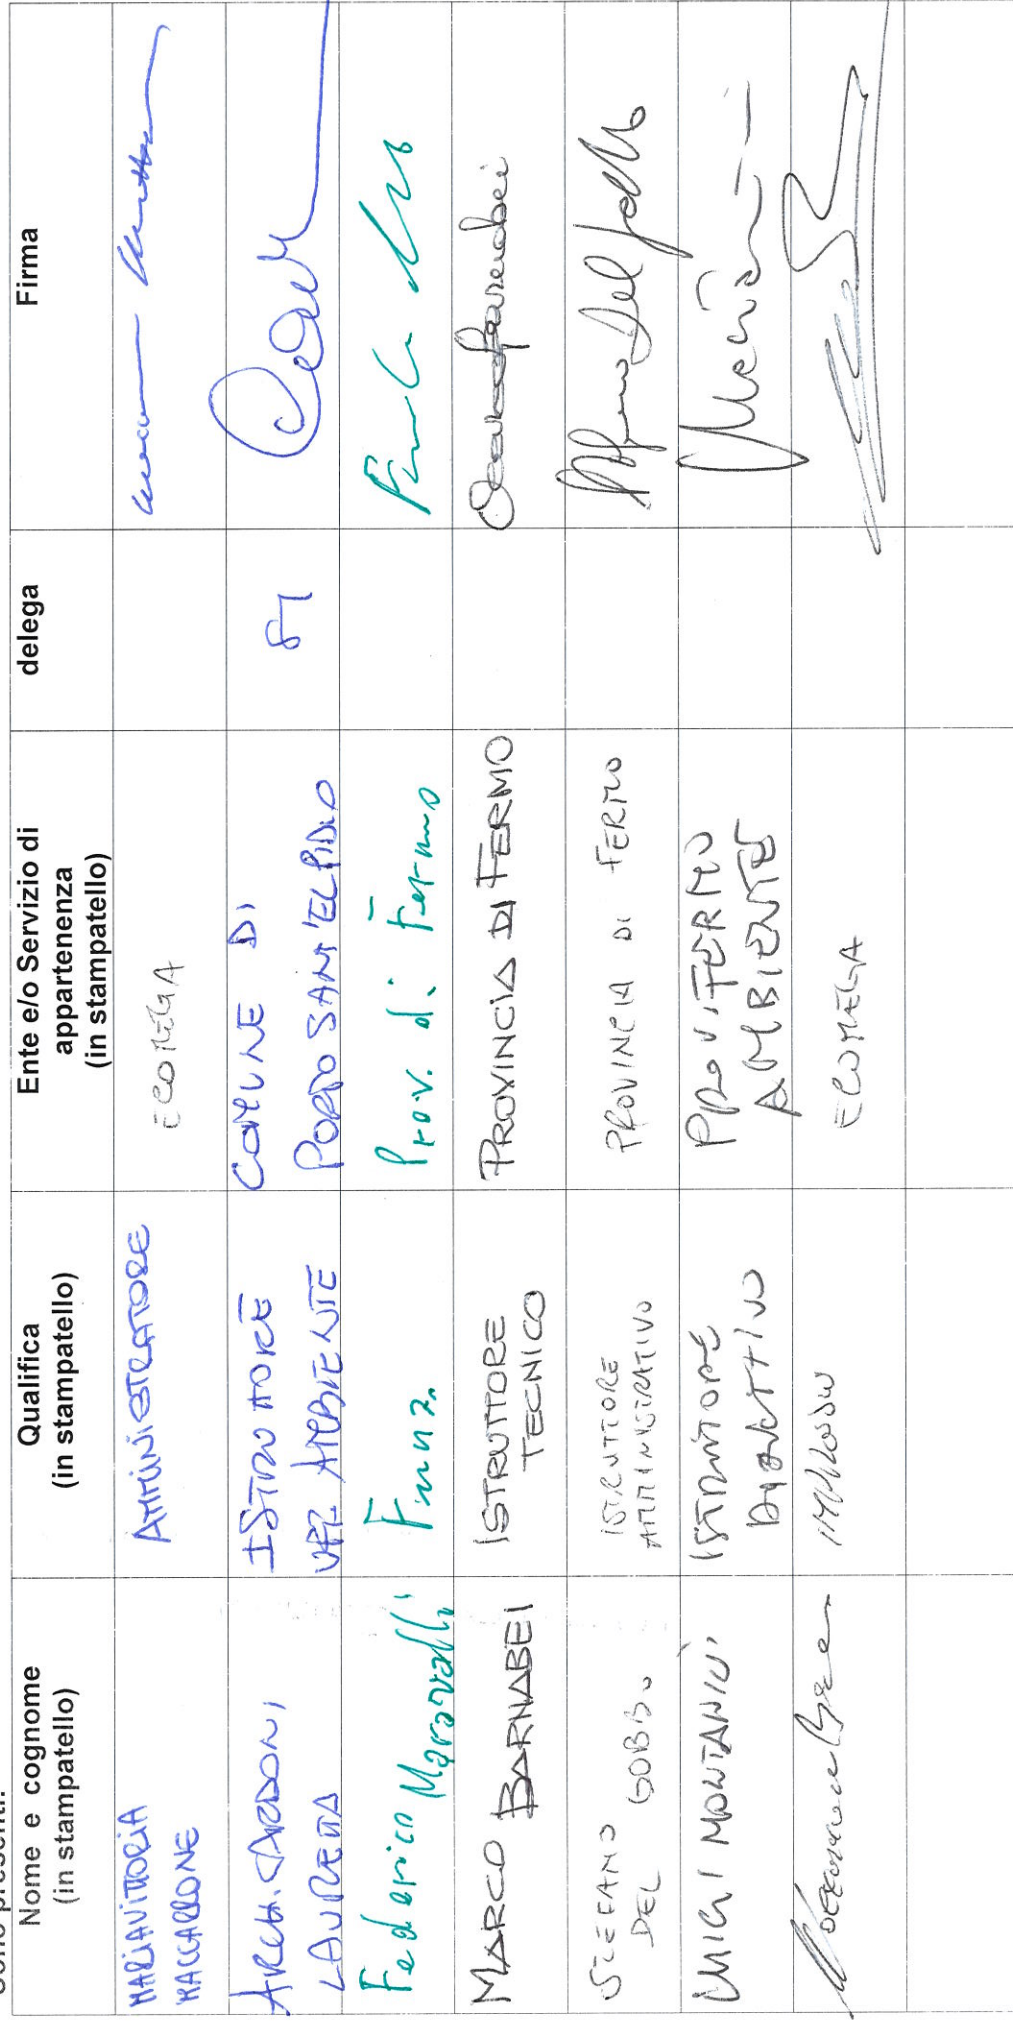 Sono presenti:
Nome e cognome
(in stampatello)
Qualifica
(in stampatello)
Ente e/o Servizio di
appartenenza
(in stampatello)
delega
Firma
MARIAVITTORIA
MACCARRONE
AMMINISTRATORE
ECOMEGA
ARCH. CARDONI
LAURETTA
ISTRUTTORE
UFF. AMBIENTE
COMUNE DI
PORTO SANT'ELPIDIO
SI
Federico Maravalli
Funz.
Prov. di Fermo
MARCO BARNABEI
ISTRUTTORE
TECNICO
PROVINCIA DI FERMO
STEFANO
DEL GOBBO
ISTRUTTORE
AMMINISTRATIVO
PROVINCIA DI FERMO
LUIGI MONTANINI
ISTRUTTORE
DIRETTIVO
PROV. FERMO
AMBIENTE
ECOMEGA